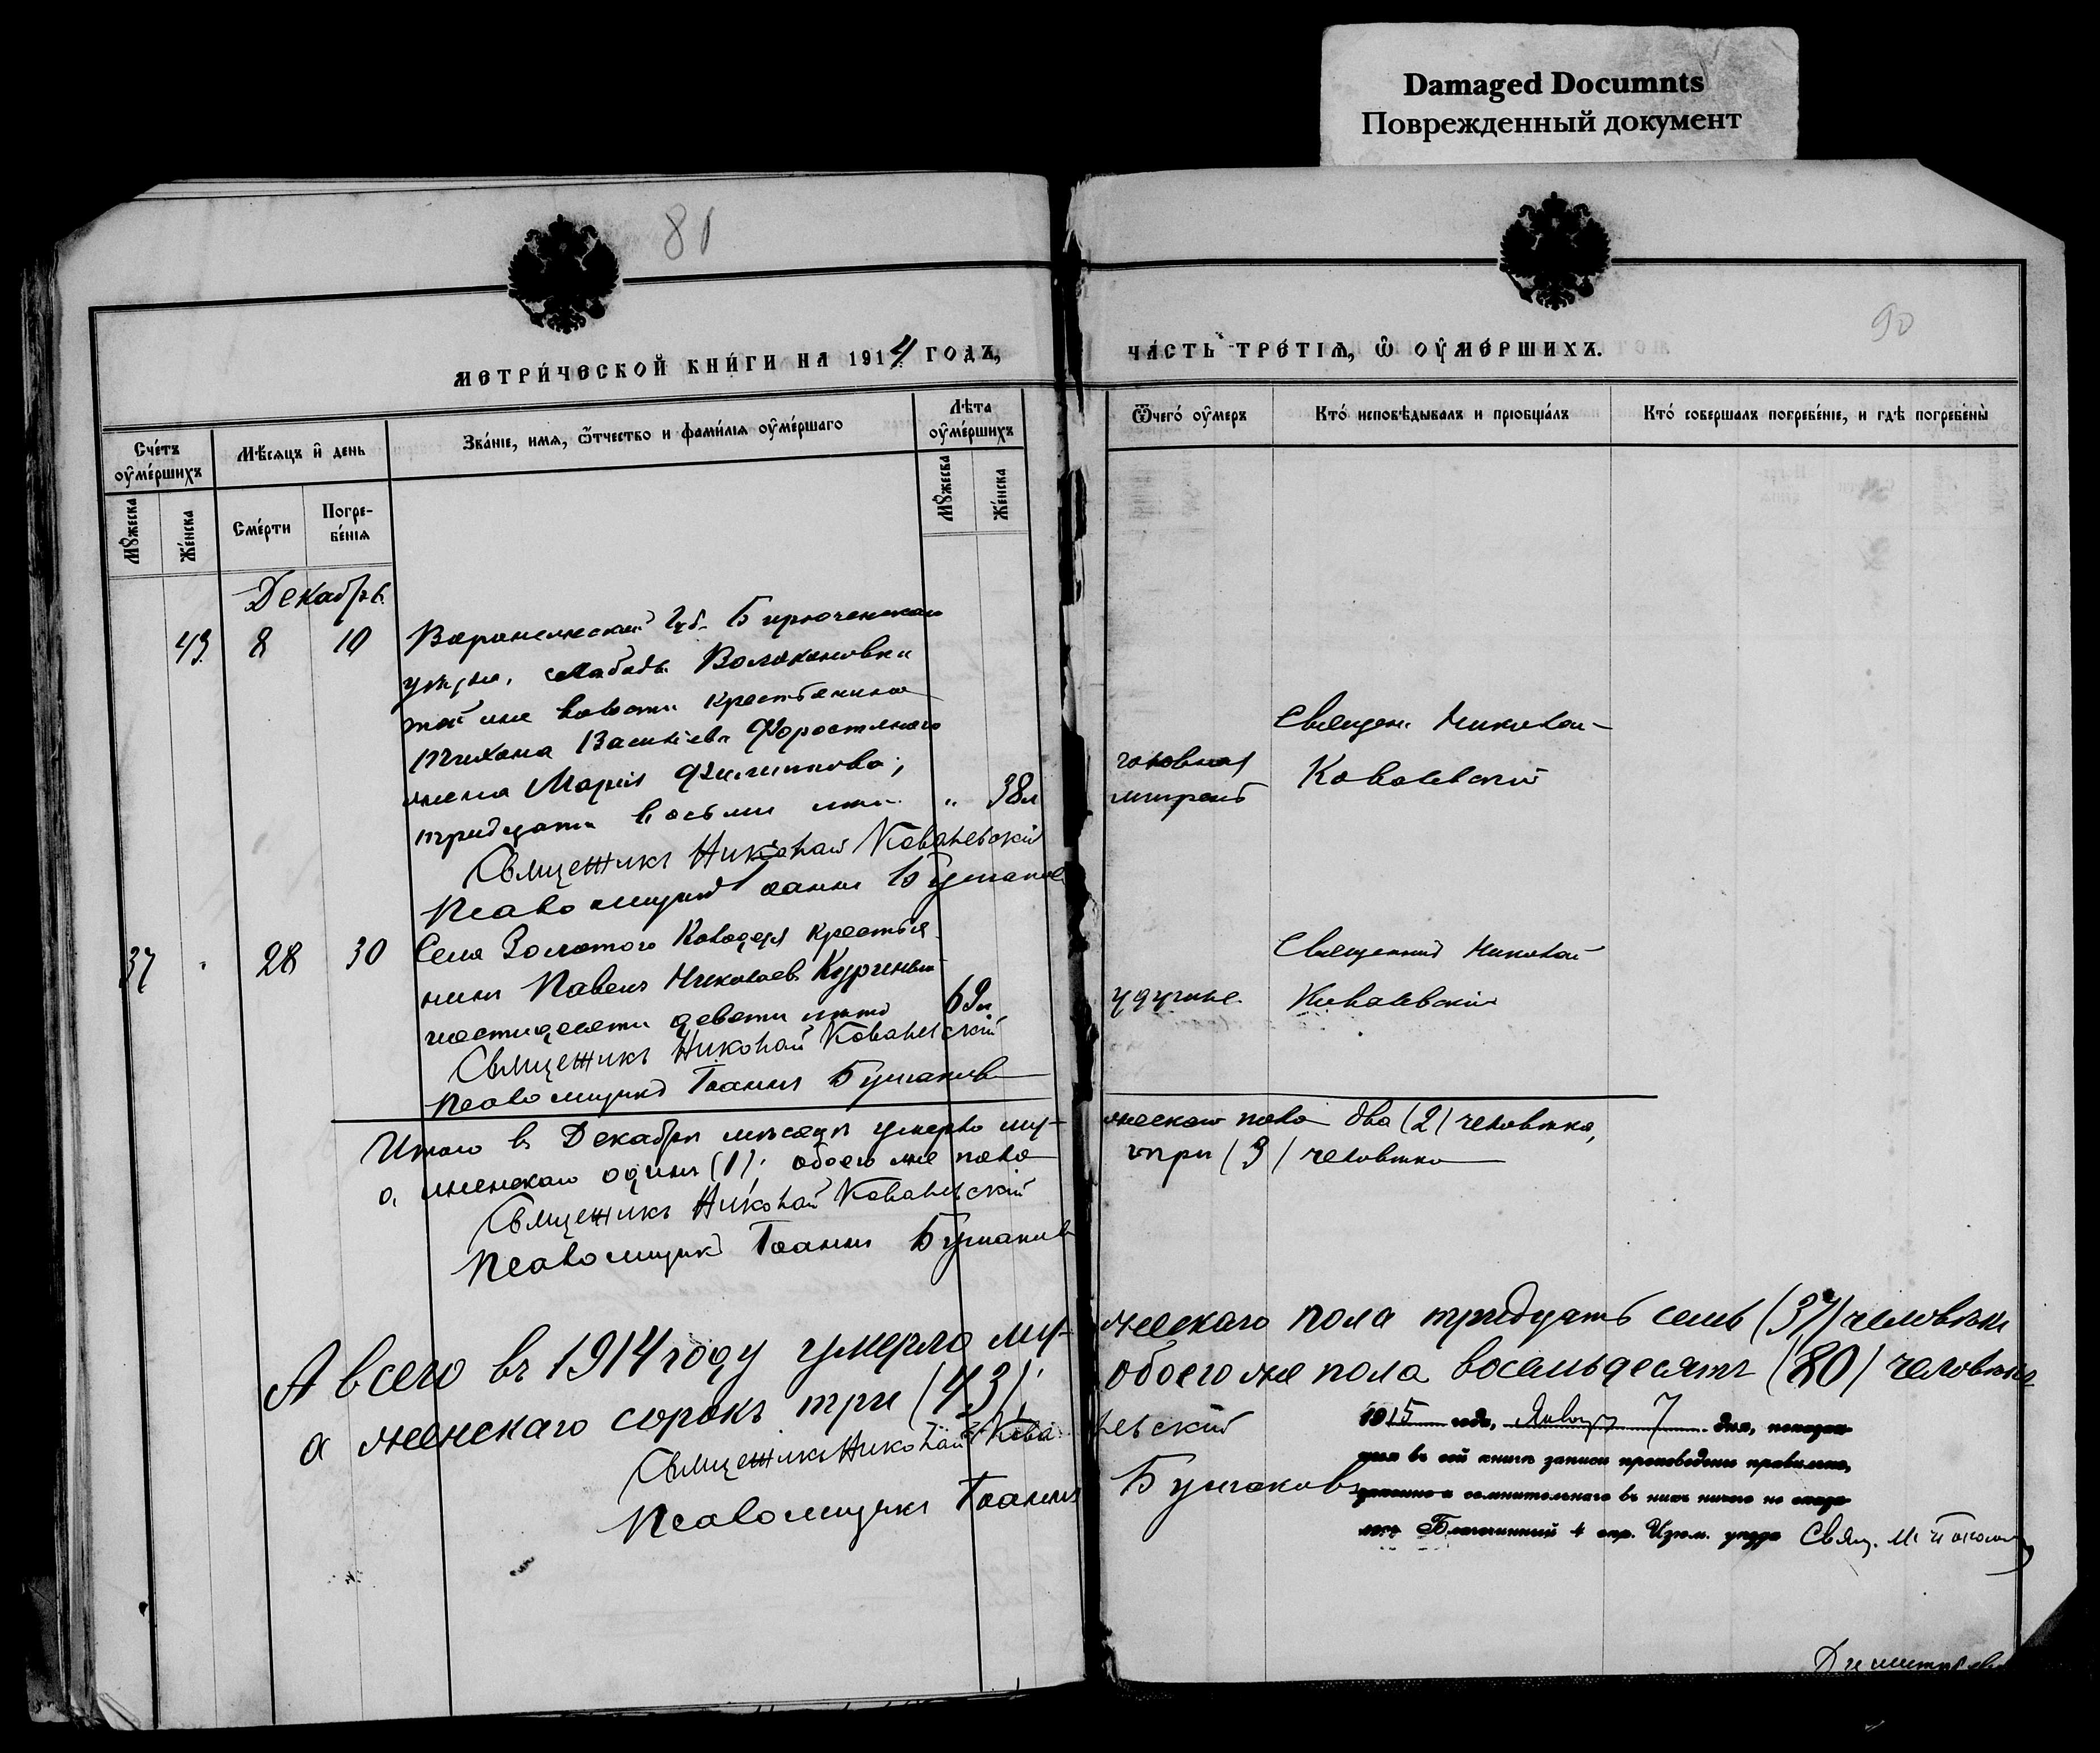 Damaged Documnts
Поврежденный документ
81
90
МЕТРИ́ЧЕСКОЙ КНИ́ГИ НА 1914 ГОДЪ,
ЧА́СТЬ ТРЕ́ТІѦ, Ѡ ОУ҆МЕ́РШИХЪ.
Сче́тъ оу҆ме́ршихъ
Мѣ́сяцъ и҆ день
Зва́ніе, имѧ, ѻ҆́тчество и фами́лїѧ оу҆ме́ршаго
Лѣта оу҆ме́ршихъ
Ѿчегѡ́ оу҆меръ
Кто́ исповѣ́дывалъ и прїобща́лъ
Кто́ совершалъ погребе́нїе, и гдѣ̀ погребены̀
Мꙋ́жеска
Же́нска
Сме́рти
Погре-
бе́нїѧ
Мꙋ́жеска
Же́нска
Декабрь
43 8 10 Воронежской губ. Бирюченскаго
уѣзда, слободы Волоконовки
той же волости крестьянина
Тихона Васильева Форостяного
жена Марія Филиппова,
тридцати восьми лѣтъ " 38л
головная
Священ. Николай
Ковалевскій
Священникъ Николай Ковалевскій
Псаломщикъ Іоаннъ Бушаковъ
37 " 28 30 Села Золотого Колодезя крестья-
нинъ Павелъ Николаевъ
шестидесяти девяти лѣтъ 69л
удушье
Священникъ Николай
Ковалевскій
Священникъ Николай Ковалевскій
Псаломщикъ Іоаннъ Бушаковъ
Итого въ Декабрѣ мѣсяцѣ умерло му-
жескаго пола два (2) человѣка,
а женскаго одинъ (1); обоего же пола
три (3) человѣка
Священникъ Николай Ковалевскій
Псаломщикъ Іоаннъ Бушаковъ
А всего въ 1914 году умерло му-
жескаго пола тридцать семь (37) человѣкъ
а женскаго сорокъ три (43);
обоего же пола восемьдесятъ (80) человѣкъ
Священникъ Николай Ковалевскій
Псаломщикъ Іоаннъ Бушаковъ
1915 года, Января 7 дня,
въ сей книгѣ записи произведены правильно,
и сомнительнаго въ нихъ ничего не оказа-
лось Благочинный 4 окр. Изюм. уѣзда Свящ.